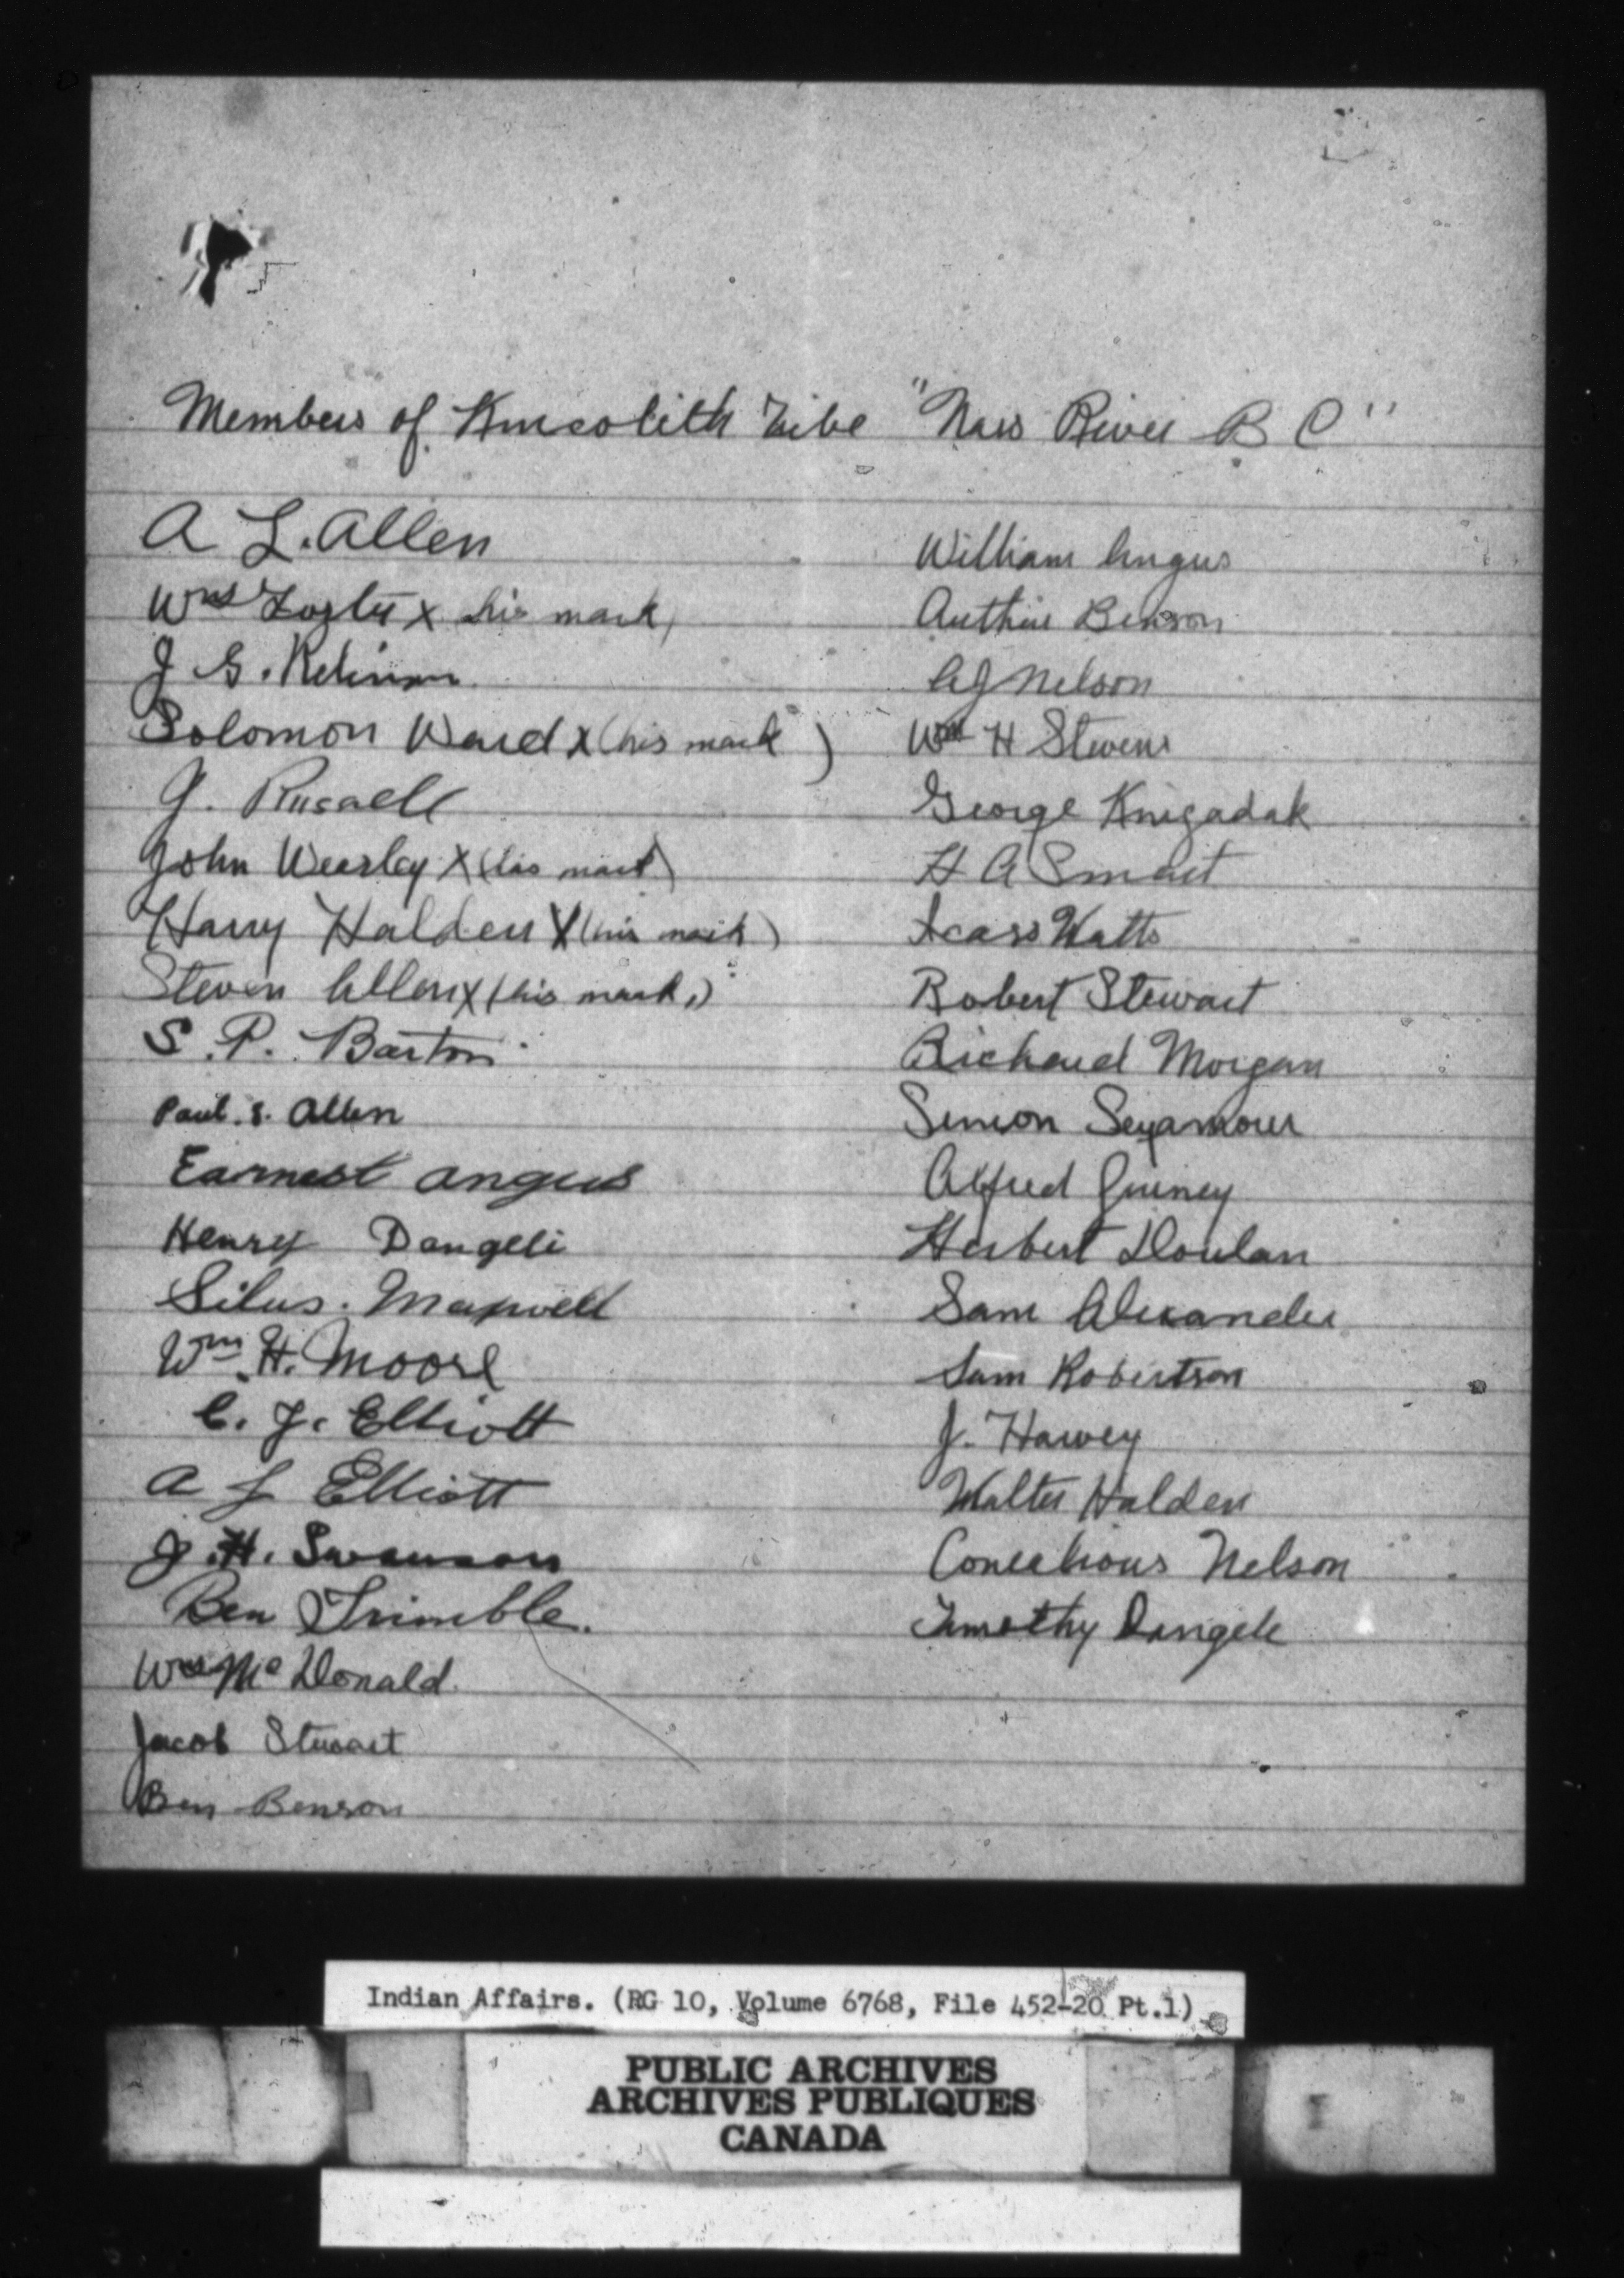 Members of Kincolith Tribe "Nass River B C"
A L. Allen
Wm Foster x his mark
J G.
Solomon Ward x (his mark)
G. Rusaell
John Weasley X (his mark)
Harry Halden X (his mark)
Steven Allen x (his mark,)
S. P. Barton
Paul. S. Allen
Earnest Angus
Henry Dangeli
Silus. Maxwell
Wm. H. Moore
C. J. Elliott
A L Elliott
J. H. Swanson
Ben Trimble.
Wm McDonald.
Jacob Stewart
Ben Benson
William Angus
Authur Benson
A J Nelson
Wm H Stevens
George Knigadak
H A Smart
Watts
Robert Stewart
Richard Morgan
Simon Seyamour
Alfred Guiney
Herbert Doulan
Sam Alexander
Sam Robertson
J. Harvey
Walter Halden
Conelious Nelson
Timothy Dangele
Indian Affairs. (RG 10, Volume 6768, File 452-20 Pt.1)
PUBLIC ARCHIVES
ARCHIVES PUBLIQUES
CANADA